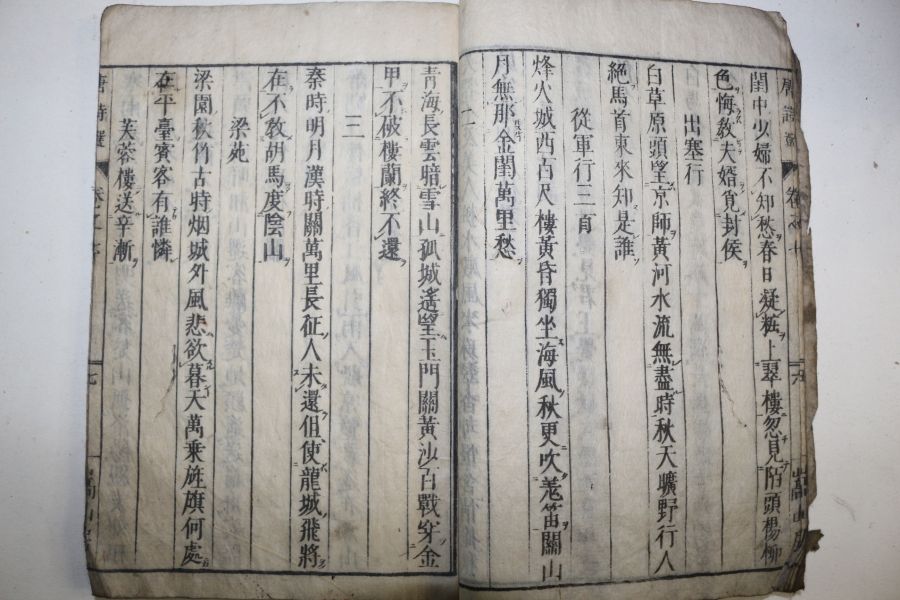 閨中少婦不知愁春日凝粧上翠樓忽見陌頭楊柳
色悔教夫婿覓封侯
出塞行
白草原頭望京師黃河水流無盡時秋天曠野行人
絶馬首東來知是誰
從軍行三首
烽火城西百尺樓黃昏獨坐海風秋更吹羗笛關山
月無那金閨萬里愁
二
青海長雲暗雪山孤城遙望玉門關黃沙百戰穿金
甲不破樓蘭終不還
三
秦時明月漢時關萬里長征人未還但使龍城飛將
在不教胡馬度陰山
梁苑
梁園秋竹古時烟城外風悲欲暮天萬乘旌旗何處
在平臺賓客有誰憐
芙蓉樓送辛漸
唐詩選
七